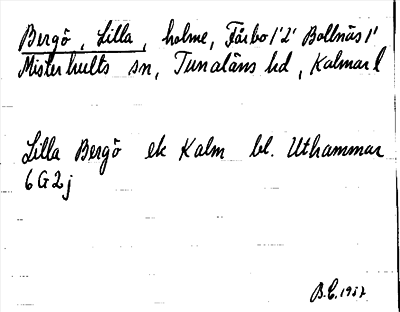 Bergö, Lilla, holme, Fårbo 1'2' Bollnäs 1'
Misterhults sn, Tunaläns hd, Kalmar l
Lilla Bergö ek Kalm bl. Uthammar
6 G 2 j
B.C. 1937